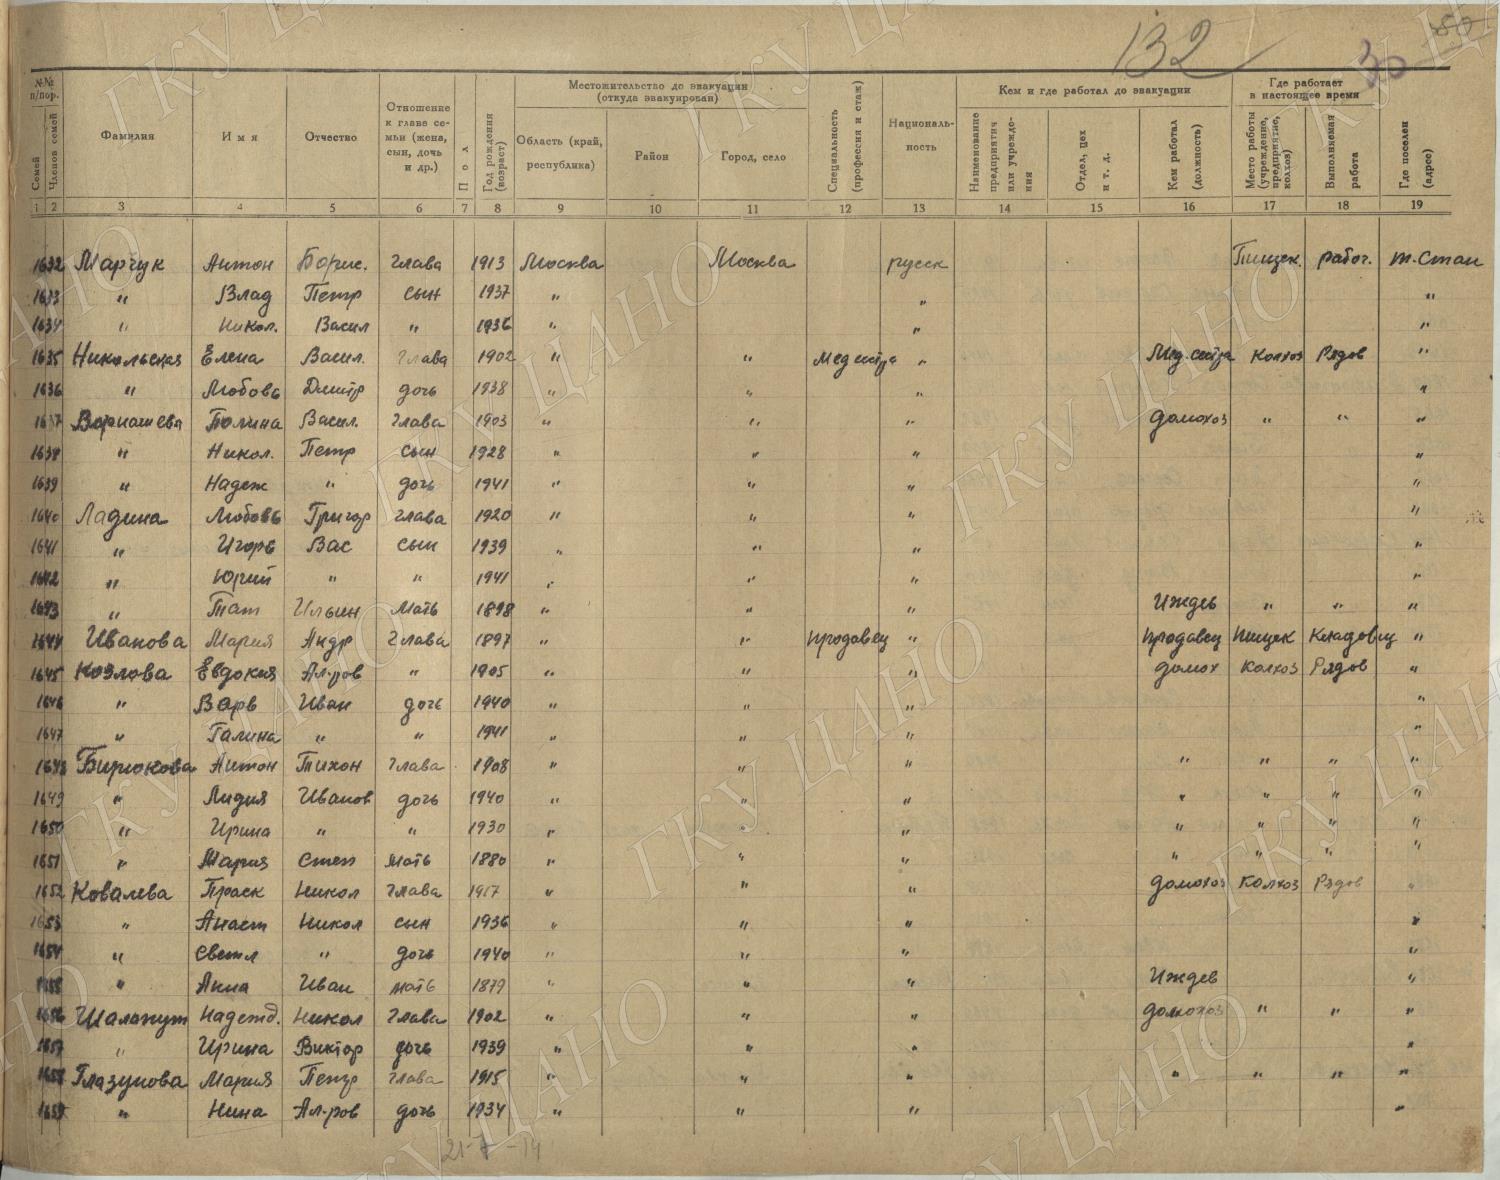 132
30
№№ п/пор.
Семей
Членов семей
Фамилия
Имя
Отчество
Отношение к главе семьи (жена, сын, дочь и др.)
Пол
Год рождения (возраст)
Местожительство до эвакуации (откуда эвакуирован)
Область (край, республика)
Район
Город, село
Специальность (профессия и стаж)
Националь-
ность
Кем и где работал до эвакуации
Наименование предприятия или учреждения
Отдел, цех и т. д.
Кем работал (должность)
Где работает в настоящее время
Место работы (учреждение, предприятие, колхоз)
Выполняемая работа
Где поселен (адрес)
1 2 3 4 5 6 7 8 9 10 11 12 13 14 15 16 17 18 19
1632 Марчук Антон Борис. глава 1913 Москва Москва русск Пищек. работ. т.Стан
1633 " Влад Петр сын 1937 " " "
1634 " Никол. Васил " 1936 " " "
1635 Никольская Елена Васил. глава 1902 " " Медсестра " Мед.сестра Колхоз Рядов "
1636 " Любовь Дмитр дочь 1938 " " " "
1637 Ворнашева Полина Васил. глава 1903 " " " домохоз " " "
1638 " Никол. Петр сын 1928 " " " "
1639 " Надеж " дочь 1941 " " " "
1640 Ладина Любовь Григор глава 1920 " " " "
1641 " Игорь Вас сын 1939 " " " "
1642 " Юрий " " 1941 " " " "
1643 " Тат Ильин мать 1898 " " " Иждев " " "
1644 Иванова Мария Андр глава 1897 " " продавец " продавец пищек Кладовщ "
1645 Козлова Евдокия Ал-ров " 1905 " " " домох колхоз Рядов "
1646 " Варв Иван дочь 1940 " " " "
1647 " Галина " " 1941 " " " "
1648 Бирюкова Антон Тихон глава 1908 " " " " " " "
1649 " Лидия Иванов дочь 1940 " " " " " " "
1650 " Ирина " " 1930 " " " " " " "
1651 " Мария Степ мать 1880 " " " " " " "
1652 Ковалева Праск Никол глава 1917 " " " домохоз колхоз Рядов "
1653 " Анаст Никол сын 1936 " " " "
1654 " Светл " дочь 1940 " " " "
1655 " Анна Иван мать 1879 " " " Иждев "
1656 Шалапут Надежд. Никол глава 1902 " " " домохоз " " "
1657 " Ирина Виктор дочь 1939 " " " "
1658 Глазунова Мария Петр глава 1915 " " " " " " "
1659 " Нина Ал-ров дочь 1934 " " " "
21-7-14
ГКУ ЦАНО